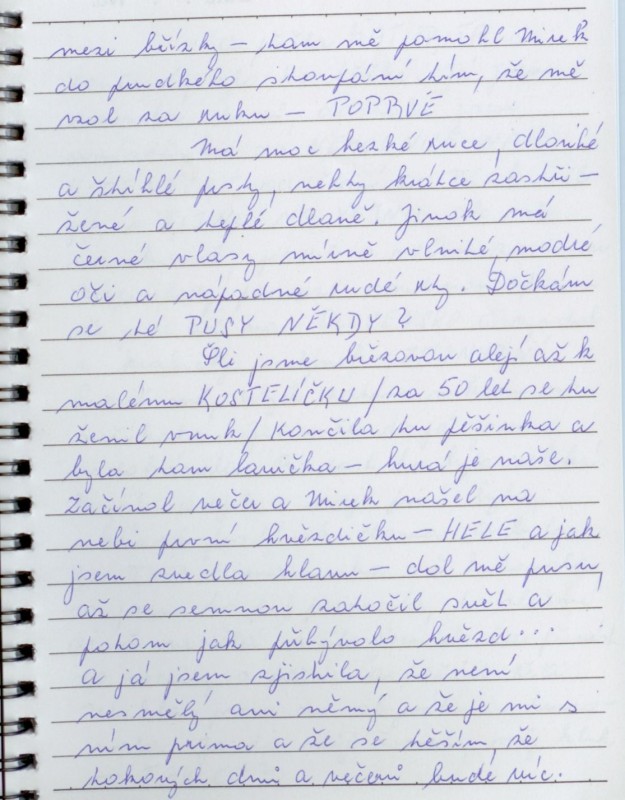 mezi břízky – tam mě pomohl Mirek
do prudkého stoupání tím, že mě
vzal za ruku – POPRVÉ
Má moc hezké ruce, dlouhé
a štíhlé prsty, nehty krátce zastři-
žené a teplé dlaně. Jinak má
černé vlasy mírně vlnité, modré
oči a nápadně rudé rty. Dočkám
se té PUSY NĚKDY?
Šli jsme březovou alejí až k
malému KOSTELÍČKU /za 50 let se tu
ženil vnuk/ Končila tu pěšinka a
byla tam lavička – hurá je naše.
Začínal večer a Mirek našel na
nebi první hvězdičku – HELE a jak
jsem zvedla hlavu – dal mě pusu,
až se semnou zatočil svět a
potom jak přibývalo hvězd...
a já jsem zjistila, že není
nesmělý ani němý a že je mi s
ním prima a že se těším, že
takových dnů a večerů bude víc.